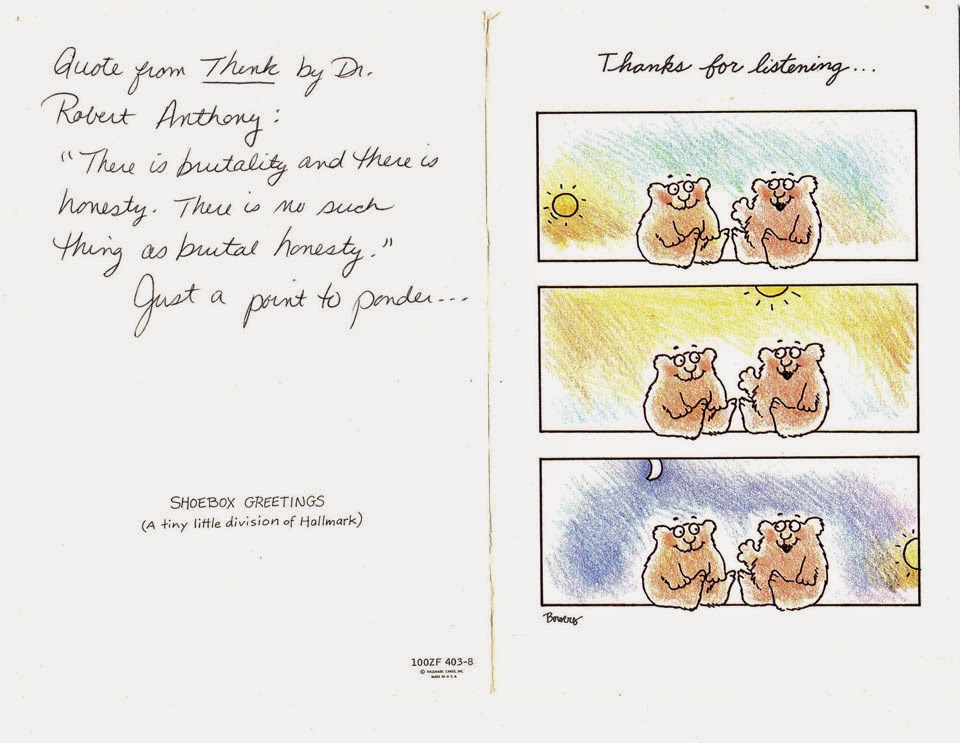 Quote from Think by Dr.
Robert Anthony:
"There is brutality and there is
honesty. There is no such
thing as brutal honesty."
Just a point to ponder...
SHOEBOX GREETINGS
(A tiny little division of Hallmark)
100ZF 403-8
© HALLMARK CARDS, INC.
MADE IN U S A
Thanks for listening...
Bowers